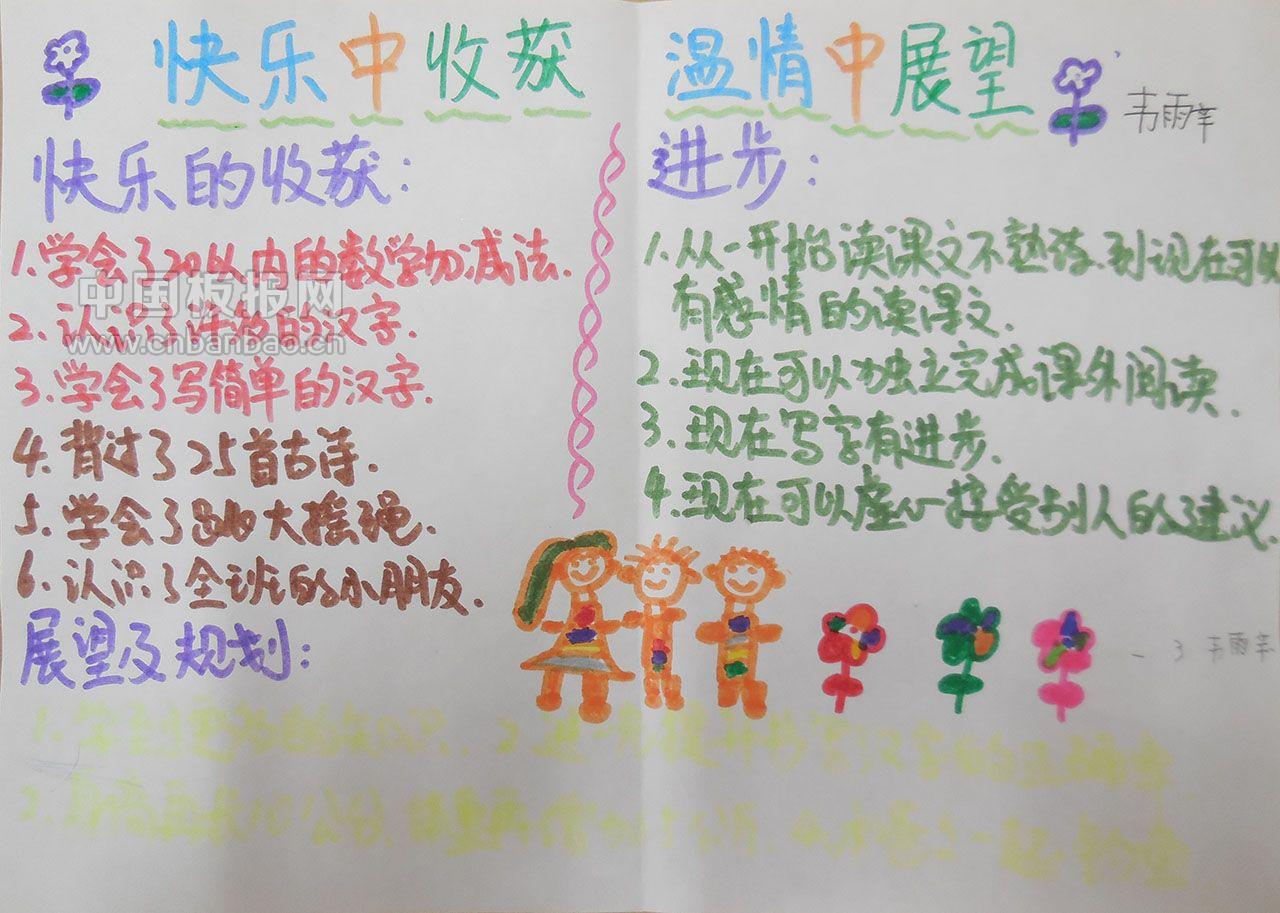 快乐中收获 温情中展望
韦雨辛
快乐的收获:
1.学会了20以内的数学加减法.
2.认识了的汉字.
3.学会了写简单的汉字.
4.背过了25首古诗.
5.学会了跳大摇绳.
6.认识了全班的小朋友.
进步:
1.从一开始读课文不熟练.到现在可以
有感情的读课文.
2.现在可以独立完成课外阅读.
3.现在写字有进步.
4.现在可以虚心接受别人的建议.
一 3 韦雨辛
展望及规划:
1.学到更多的知识. 2.进一步提升书写汉字的正确率.
中国板报网
www.cnbanbao.cn